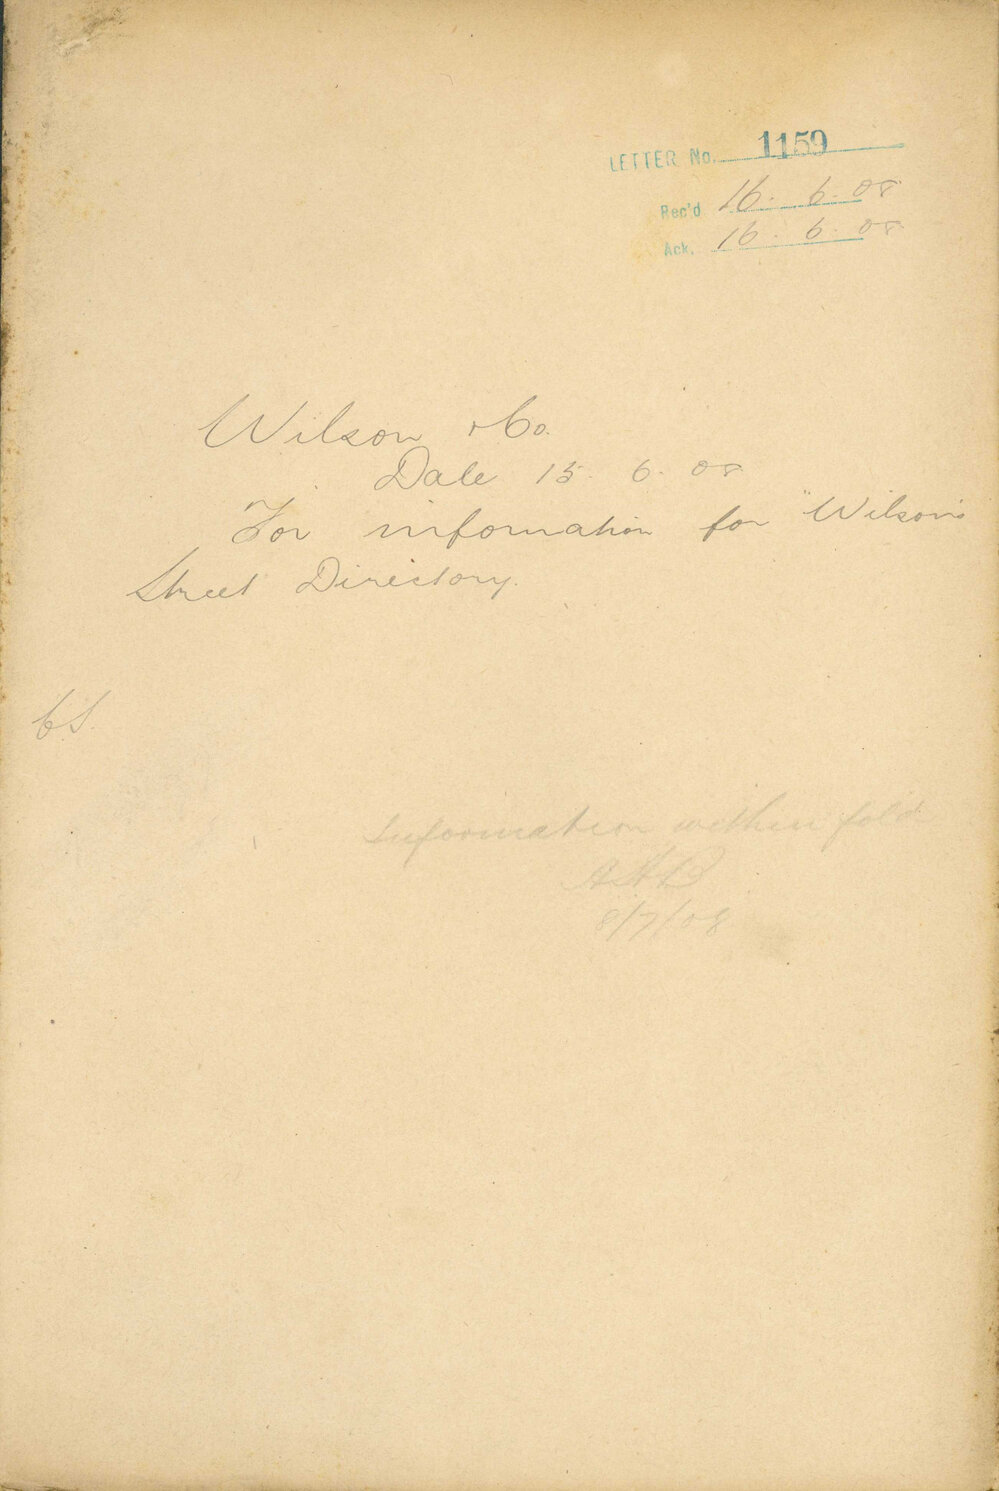 LETTER No. 1159
Rec'd 16. 6. 08
Ack. 16. 6. 08
Wilson & Co.
Date 15. 6. 08
For information for "Wilson's
Street Directory.
Information within fold
8/7/08